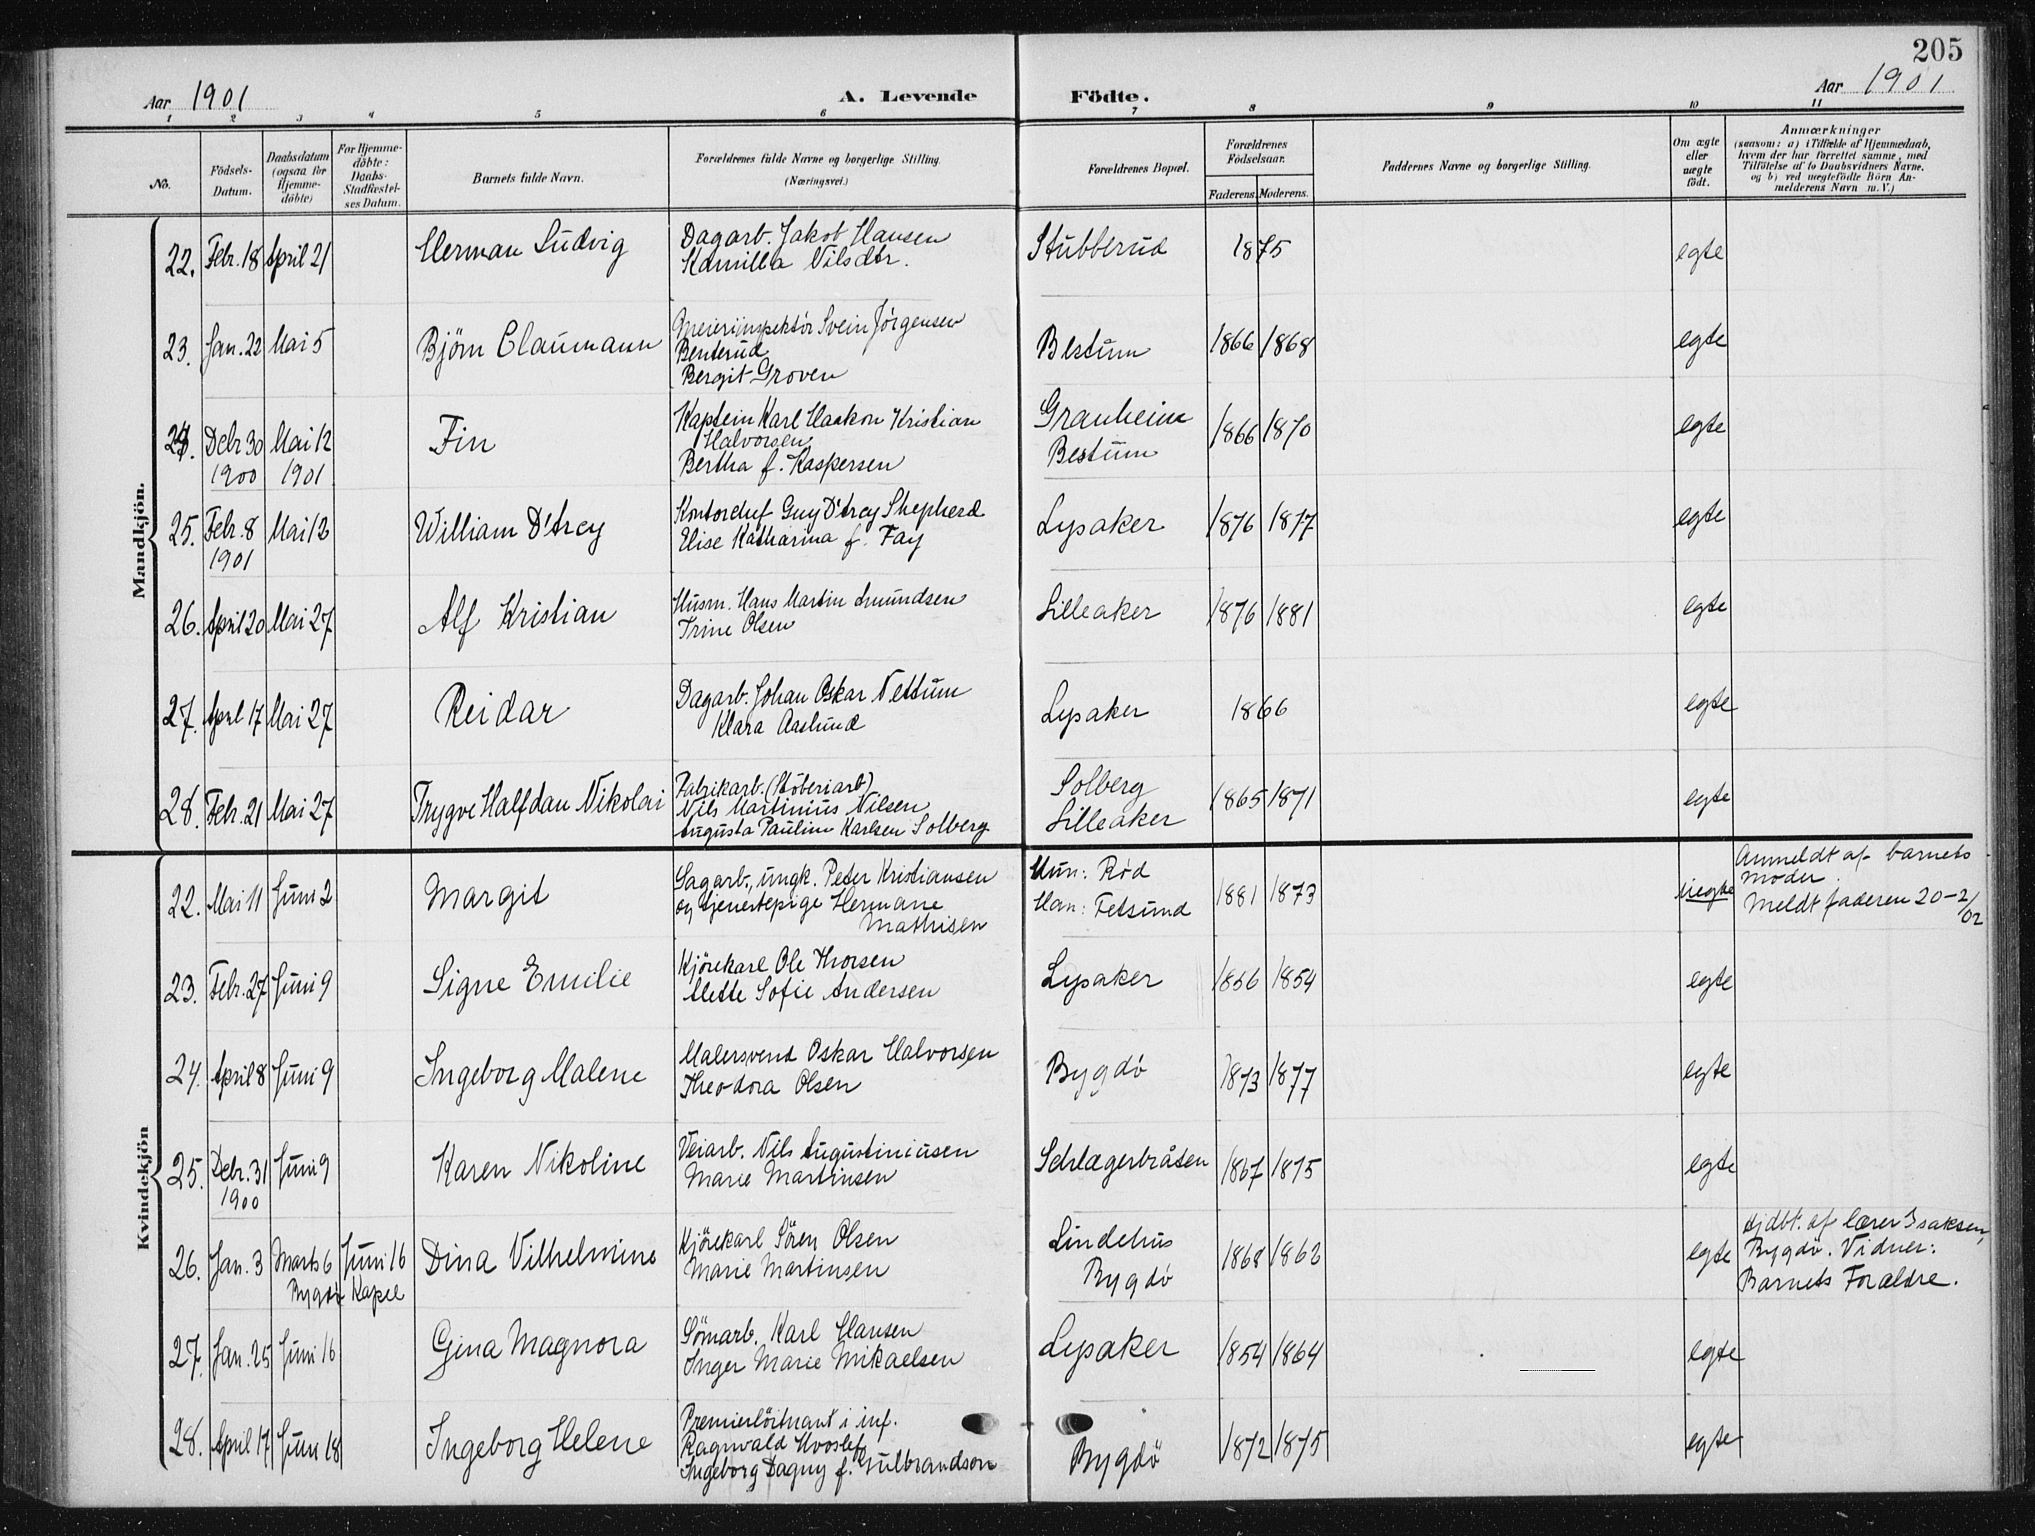 205
Aar 1901
A. Levende Födte.
Aar 1901
1 2 3 4 5 6 7 8 9 10 11
No.
Födsels-Datum.
Daabsdatum (ogsaa for Hjemme-döbte)
For Hjemme-döbte: Daabs-Stadfæstel-ses Datum.
Barnets fulde Navn.
Forældrenes fulde Navne og borgerlige Stilling. (Næringsvei.)
Forældrenes Bopæl.
Forældrenes Födselsaar.
Faderens. Moderens.
Faddernes Navne og borgerlige Stilling.
Om ægte eller uægte födt.
Anmærkninger
(saasom: a) i Tilfælde af Hjemmedaab, hvem der har forrettet samme, med Tilföielse af to Daabsvidners Navne, og b) ved uægtefödte Börn An-melderens Navn m. V.)
Mandkjön.
22. Febr. 18 April 21 Herman Ludvig Dagarb. Jakob Hansen Stubberud 1875 egte
Kamilla Nilsdtr.
23. Jan. 22 Mai 5 Björn Claumann Meieriinspektör Svein Jörgensen Bestum 1866 1868 egte
Benterud
Bergit Groven
24. Debr. 30 Mai 12 Fin Kaptein Karl Haakon Kristian Granheim 1866 1870 egte
1900 1901 Halvorsen Bestum
Bertha f. Kaspersen
25. Febr. 8 Mai 12 William D'trey Kontorchef Guy D'trey Shepherd Lysaker 1876 1877 egte
1901 Elise Katharina f. Fay
26. April 20 Mai 27 Alf Kristian Husm. Hans Martin Amundsen Lilleaker 1876 1881 egte
Trine Olsen
27. April 17 Mai 27 Reidar Dagarb. Johan Oskar Nettum Lysaker 1866 egte
Klara Aaslund
28. Febr. 21 Mai 27 Trygve Halfdan Nikolai Fabrikarb. (Støberiarb) Solberg 1865 1871 egte
Nils Martinius Nilsen Lilleaker
Augusta Pauline Karlsen Solberg
Kvindekjön
22. Mai 11 Juni 2 Margit Sagarb., ungk. Peter Kristiansen Hun: Rød 1881 1873 uegte Anmeldt af barnets moder.
og tjenestepige Hermane Mathisen Han: Fetsund Meldt faderen 20-2/02
23. Febr. 27 Juni 9 Signe Emilie Kjörekarl Ole Thorsen Lysaker 1856 1854 egte
Mette Sofie Andersen
24. April 8 Juni 9 Ingeborg Malene Malersvend Oskar Halvorsen Bygdö 1873 1877 egte
Theodora Olsen
25. Debr. 31 Juni 9 Karen Nikoline Veiarb. Nils Augustiniusen Schlagerbråten 1867 1875 egte
1900 Marie Martinsen
26. Jan. 3 Marts 6 Juni 16 Dina Vilhelmine Kjörekarl Sören Olsen Lindehus 1868 1862 egte Hjdbt. af lærer Isaksen,
Bygdö Kapel Marie Martinsen Bygdö Bygdö. Vidner:
Barnets Forældre.
27. Jan. 25 Juni 16 Gina Magnora Sömarb. Karl Hansen Lysaker 1854 1864 egte
Inger Marie Mikaelsen
28. April 17 Juni 18 Ingeborg Helene Premierlöitnant i inf. Bygdö 1872 1875 egte
Ragnvald Hvoslef
Ingeborg Dagny f. Gulbrandson